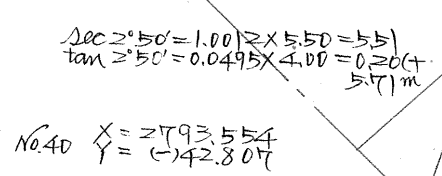 sec 2°50′=1.0012×5.50=5.51
tan 2°50′=0.0495×4.00=0.20(+
5.71 m
No.40 X = 2793.554
Y = (-)42.807